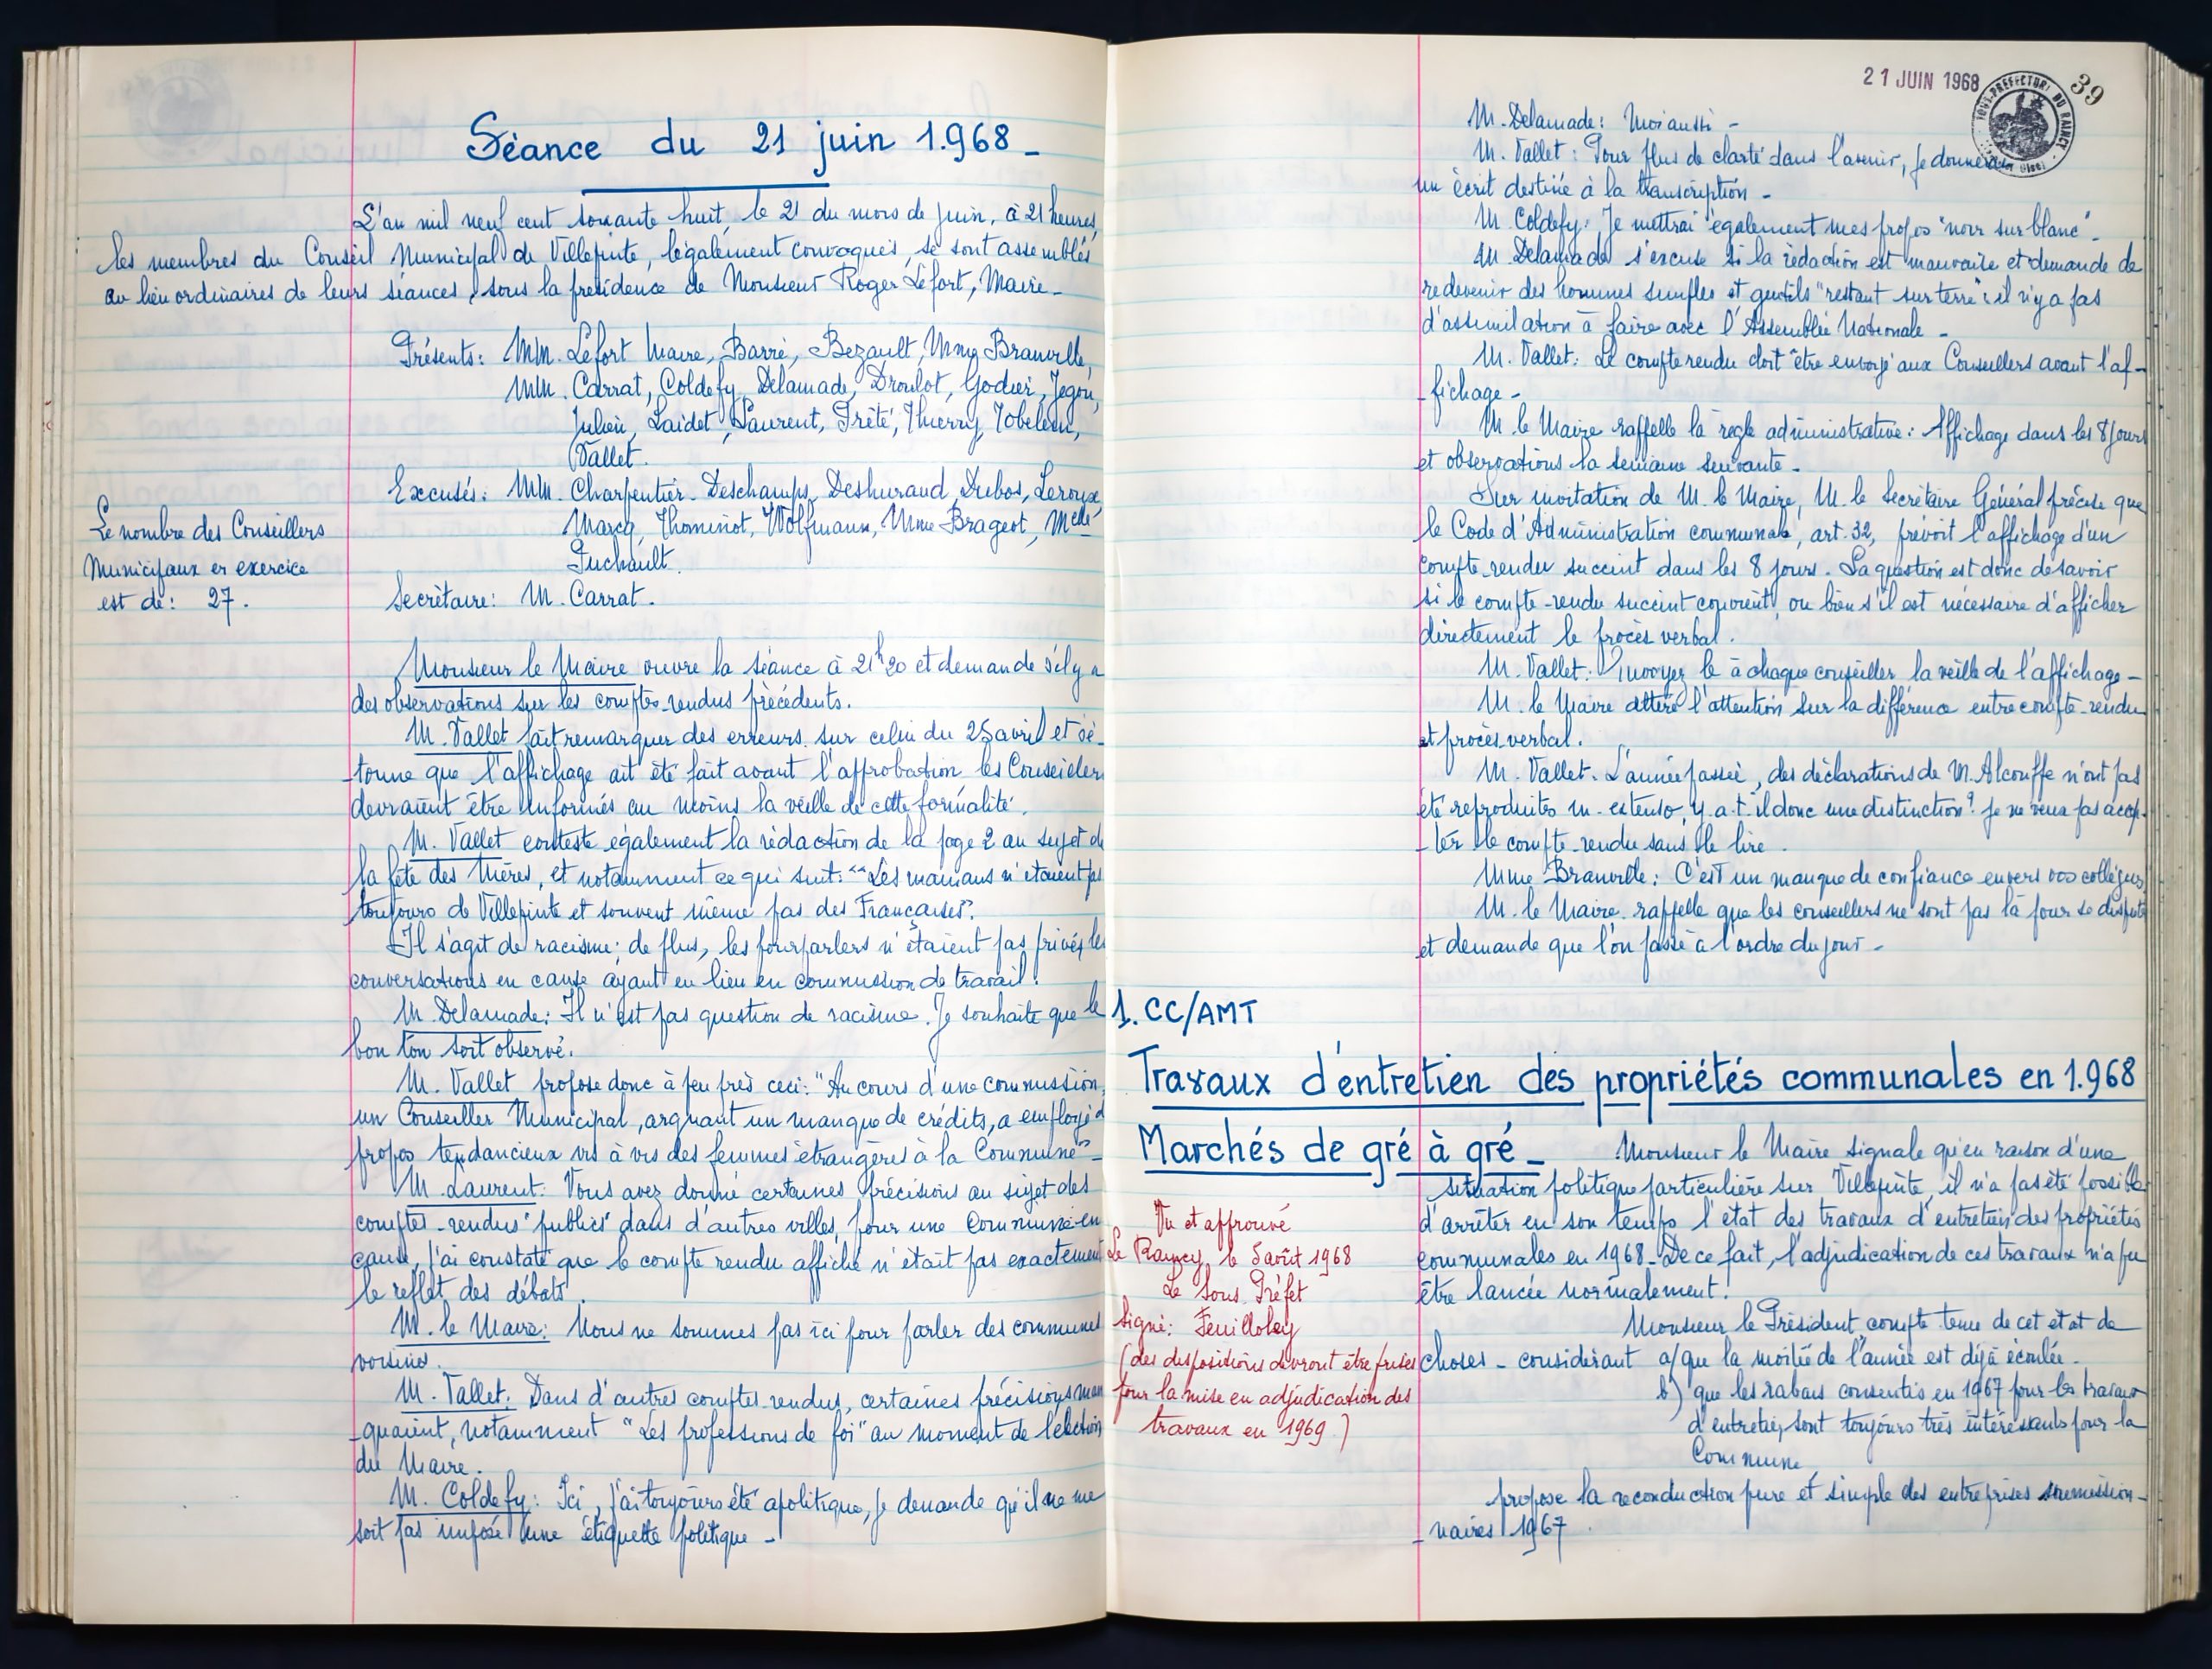 Séance du 21 juin 1.968 -
L'an mil neuf cent soixante huit, le 21 du mois de juin, à 21 heures,
les membres du Conseil Municipal de Villepinte, légalement convoqués, se sont assemblés
au lieu ordinaires de leurs séances, sous la présidence de Monsieur Roger Lefort, Maire -
Présents: MM. Lefort Maire, Barré, Bezault, Mme Branville,
MM. Carrat, Coldefy, Delamade, Droulot, Godier, Jegou,
Julien, Laidet, Laurent, Prêté, Thierry, Tobelem,
Vallet.
Excusés: MM. Charpentier - Deschamps, Deshuraud, Dubos, Leroux,
Marcq, Thominot, Wolfmann, Mme Brageot, Melle
Puchault.
Le nombre des Conseillers
Municipaux en exercice
est de: 27.
Secrétaire: M. Carrat.
Monsieur le Maire ouvre la séance à 21h20 et demande s'il y a
des observations sur les comptes-rendus précédents.
M. Vallet fait remarquer des erreurs sur celui du 25 avril et s'é-
-tonne que l'affichage ait été fait avant l'approbation, les Conseillers
devraient être informés au moins la veille de cette formalité.
M. Vallet conteste également la rédaction de la page 2 au sujet de
la fête des Mères, et notamment ce qui suit: "Les mamans n'étaient pas
toujours de Villepinte et souvent même pas des Françaises".
Il s'agit de racisme; de plus, les pourparlers n'étaient pas privés, les
conversations en cause ayant eu lieu en commission de travail.
M. Delamade: Il n'est pas question de racisme. Je souhaite que le
bon ton soit observé.
M. Vallet propose donc à peu près ceci: "Au cours d'une commission,
un Conseiller Municipal, arguant un manque de crédits, a employé d
propos tendancieux vis à vis des femmes étrangères à la Commune" -
M. Laurent: Vous avez donné certaines précisions au sujet des
comptes-rendus "publics" dans d'autres villes, pour une Commune en
cause, j'ai constaté que le compte rendu affiché n'était pas exactement
le reflet des débats.
M. le Maire: Nous ne sommes pas ici pour parler des communes
voisines.
M. Vallet: Dans d'autres comptes-rendus, certaines précisions man
-quaient, notamment "Les professions de foi" au moment de l'élection
du Maire.
M. Coldefy: Ici, j'ai toujours été apolitique, je demande qu'il ne me
soit pas imposé une étiquette politique -
21 JUIN 1968
39
SOUS-PREFECTURE DU RAINCY
M. Delamade: Moi aussi -
M. Vallet: Pour plus de clarté dans l'avenir, je donnerai
un écrit destiné à la transcription -
M. Coldefy: Je mettrai également mes propos "noir sur blanc" -
M. Delamade s'excuse si la rédaction est mauvaise et demande de
redevenir des hommes simples et gentils "restant sur terre": il n'y a pas
d'assimilation à faire avec l'Assemblée Nationale -
M. Vallet: Le compte rendu doit être envoyé aux Conseillers avant l'af-
-fichage -
M. le Maire rappelle la règle administrative: Affichage dans les 8 jours
et observations la semaine suivante -
Sur invitation de M. le Maire, M. le Secrétaire Général précise que
le Code d'Administration communale, art. 32, prévoit l'affichage d'un
compte-rendu succint dans les 8 jours. La question est donc de savoir
si le compte-rendu succint convient, ou bien s'il est nécessaire d'afficher
directement le procès verbal.
M. Vallet: Envoyez le à chaque conseiller la veille de l'affichage -
M. le Maire attire l'attention sur la différence entre compte-rendu
et procès-verbal.
M. Vallet. L'année passée, des déclarations de M. Alcouffe n'ont pas
été reproduites in-extenso, y.a.t.il donc une distinction? Je ne veux pas accep-
-ter le compte-rendu sans le lire.
Mme Branville: C'est un manque de confiance envers vos collègues,
M. le Maire rappelle que les conseillers ne sont pas là pour se disputer
et demande que l'on passe à l'ordre du jour -
1. CC/AMT
Travaux d'entretien des propriétés communales en 1.968
Marchés de gré à gré -
Monsieur le Maire signale qu'en raison d'une
situation politique particulière sur Villepinte, il n'a pas été possible
d'arrêter en son temps l'état des travaux d'entretien des propriétés
communales en 1968 - De ce fait, l'adjudication de ces travaux n'a pu
être lancée normalement.
Vu et approuvé
Le Raincy, le 5 août 1968
Le Sous Préfet
Signé: Feuilloley
(des dispositions devront être prises
pour la mise en adjudication des
travaux en 1969)
Monsieur le Président, compte tenu de cet état de
choses - considérant a/ que la moitié de l'année est déjà écoulée -
b) que les rabais consentis en 1967 pour les travaux
d'entretien sont toujours très intéressants pour la
Commune,
propose la reconduction pure et simple des entreprises soumission-
-naires 1967.